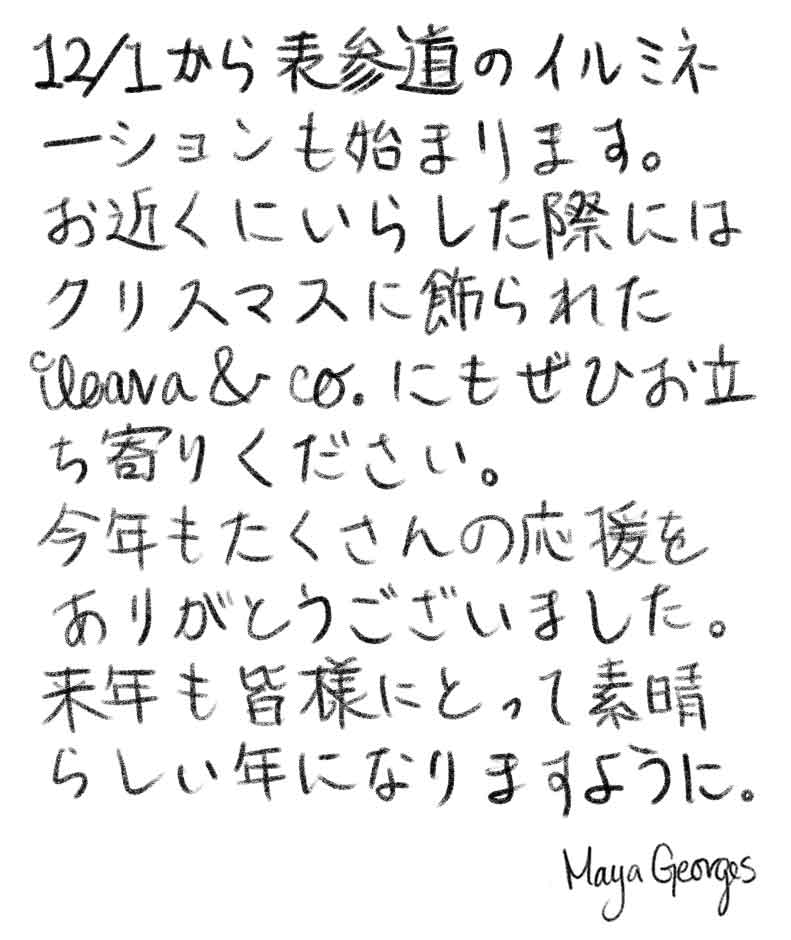 12/1から表参道のイルミネ
ーションも始まります。
お近くにいらした際には
クリスマスに飾られた
ileava & co. にもぜひお立
ち寄りください。
今年もたくさんの応援を
ありがとうございました。
来年も皆様にとって素晴
らしい年になりますように。
Maya Georges